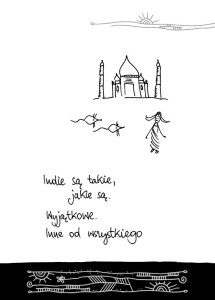 Indie są takie,
jakie są.
Wyjątkowe.
Inne od wszystkiego